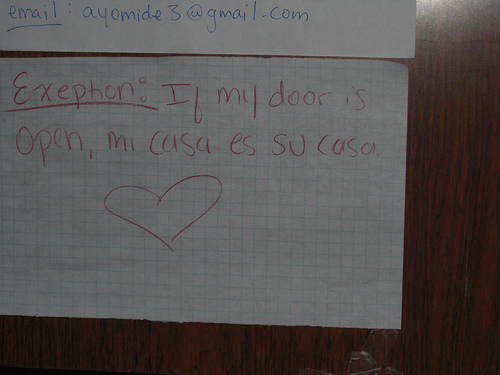 email: ayomide3@gmail.com
Exephon: If my door is
open, mi casa es su casa.